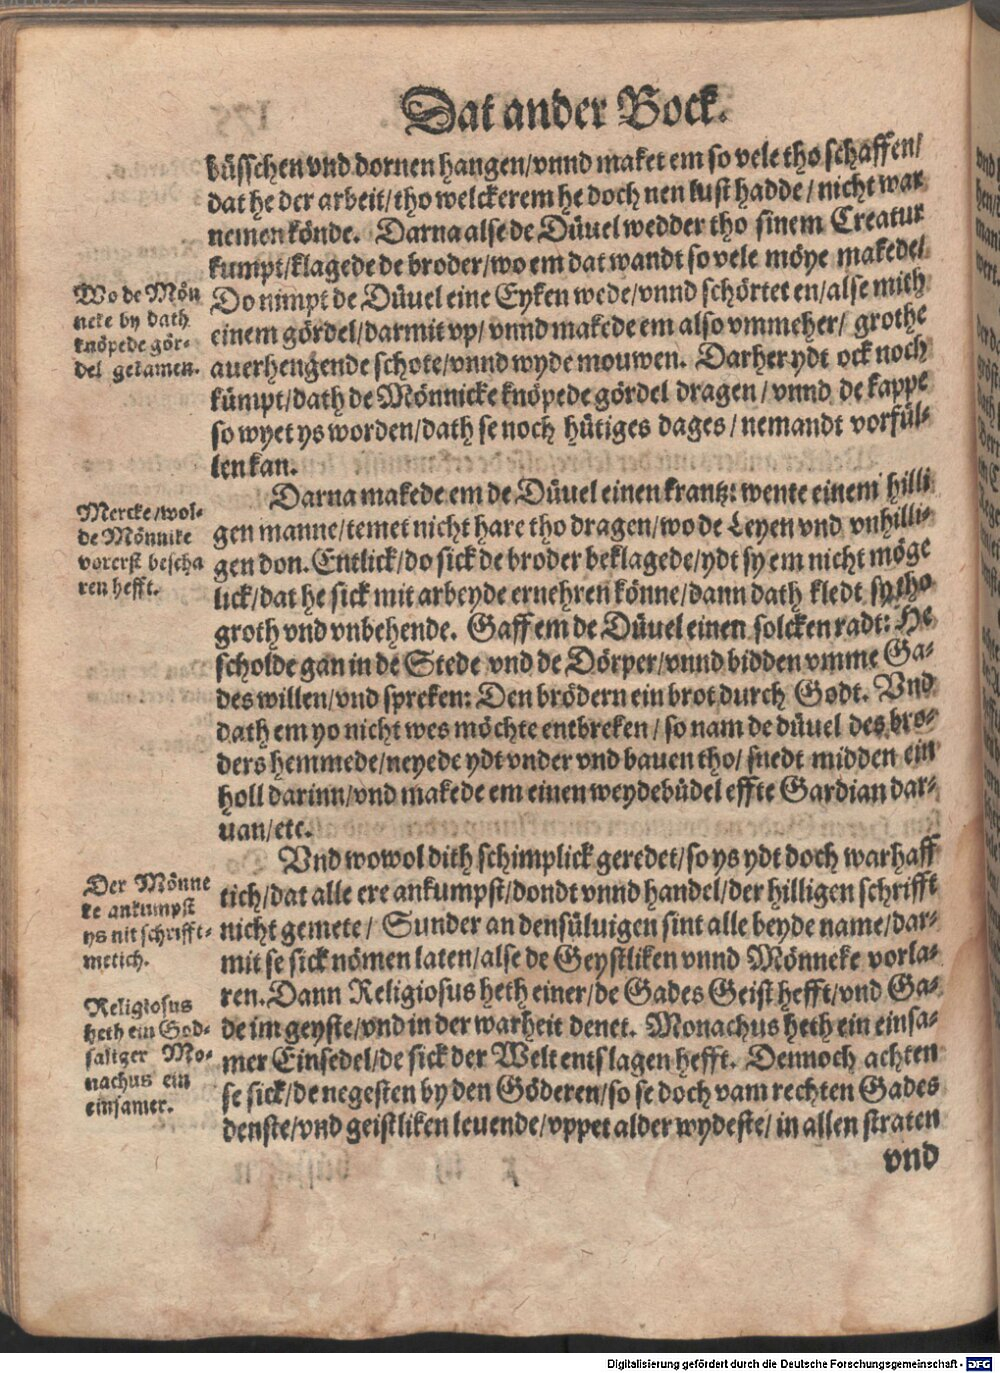 Dat ander Bock.
büsschen vnd dornen hangen/vnnd maket em so vele tho schaffen/
dat he der arbeit/tho welckerem he doch nen lust hadde/nicht war
nemen könde. Darna alse de Düuel wedder tho sinem Creatur
kumpt/klagede de broder/wo em dat wandt so vele möye makede
Do nimpt de Düuel eine Eyken wede/vnnd schörtet en/alse mith
einem gördel/darmit vp/vnnd makede em also vmmeher/ grothe
auerhengende schote/vnnd wyde mouwen. Darher ydt ock noch
kümpt/dath de Mönnicke knöpede gördel dragen/vnnd de kappe
so wyet ys worden/dath se noch hütiges dages/nemandt vorfül-
len kan.
Wo de Mön
neke by dath
knöpede gör-
del gekamen.
Darna makede em de Düuel einen krantz: wente einem hilli
gen manne/temet nicht hare tho dragen/wo de Leyen vnd vnhilli-
gen don. Entlick/do sick de broder beklagede/ydt sy em nicht möge
lick/dat he sick mit arbeyde ernehren könne/dann dath kledt sy tho
groth vnd vnbehende. Gaff em de Düuel einen solcken radt: He
scholde gan in de Stede vnd de Dörper/vnnd bidden vmme Ga-
des willen/vnd spreken: Den brödern ein brot durch Godt. Vnd
dath em yo nicht wes möchte entbreken/so nam de düuel des bro-
ders hemmede/neyede ydt vnder vnd bauen tho/snedt midden ein
holl darinn/vnd makede em einen weydebüdel effte Gardian dar-
uan/etc.
Mercke/wol-
de Mönnike
vorerst bescha
ren hefft.
Vnd wowol dith schimplick geredet/so ys ydt doch warhaff
tich/dat alle ere ankumpst/dondt vnnd handel/der hilligen schrifft
nicht gemete/ Sunder an densüluigen sint alle beyde name/dar-
mit se sick nömen laten/alse de Geystliken vnnd Mönneke vorla-
ren. Dann Religiosus heth einer/de Gades Geist hefft/vnd Ga-
de im geyste/vnd in der warheit denet. Monachus heth ein einsa-
mer Einsedel/de sick der Welt entslagen hefft. Dennoch achten
se sick/de negesten by den Göderen/so se doch vam rechten Gades
denste/vnd geistliken leuende/vppet alder wydeste/in allen straten
Der Mönne
ke ankumpst
ys nit schrifft-
metich.
Religiosus
heth ein God-
saliger Mo-
nachus ein
einsamer.
vnd
Digitalisierung gefördert durch die Deutsche Forschungsgemeinschaft - DFG